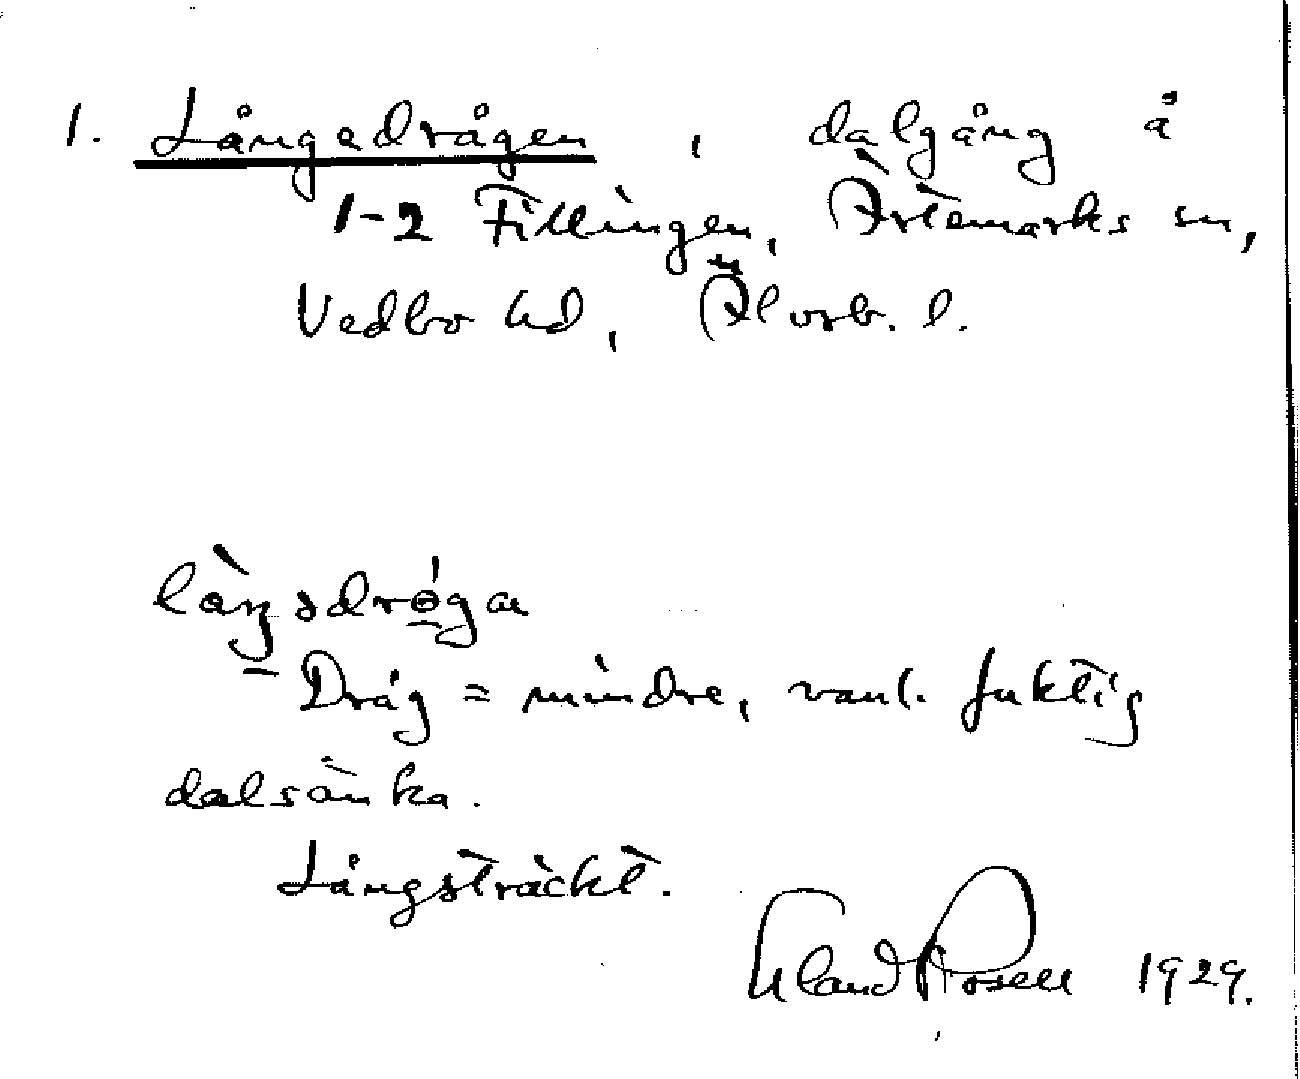 1. Långedrågen, dalgång å
1-2 Fillingen, Ärtemarks sn,
Vedbo hd, Älvsb. l.
Dråg = mindre, vanl. fuktig
dalsänka.
Långsträckt.
Erland Rosell 1929.